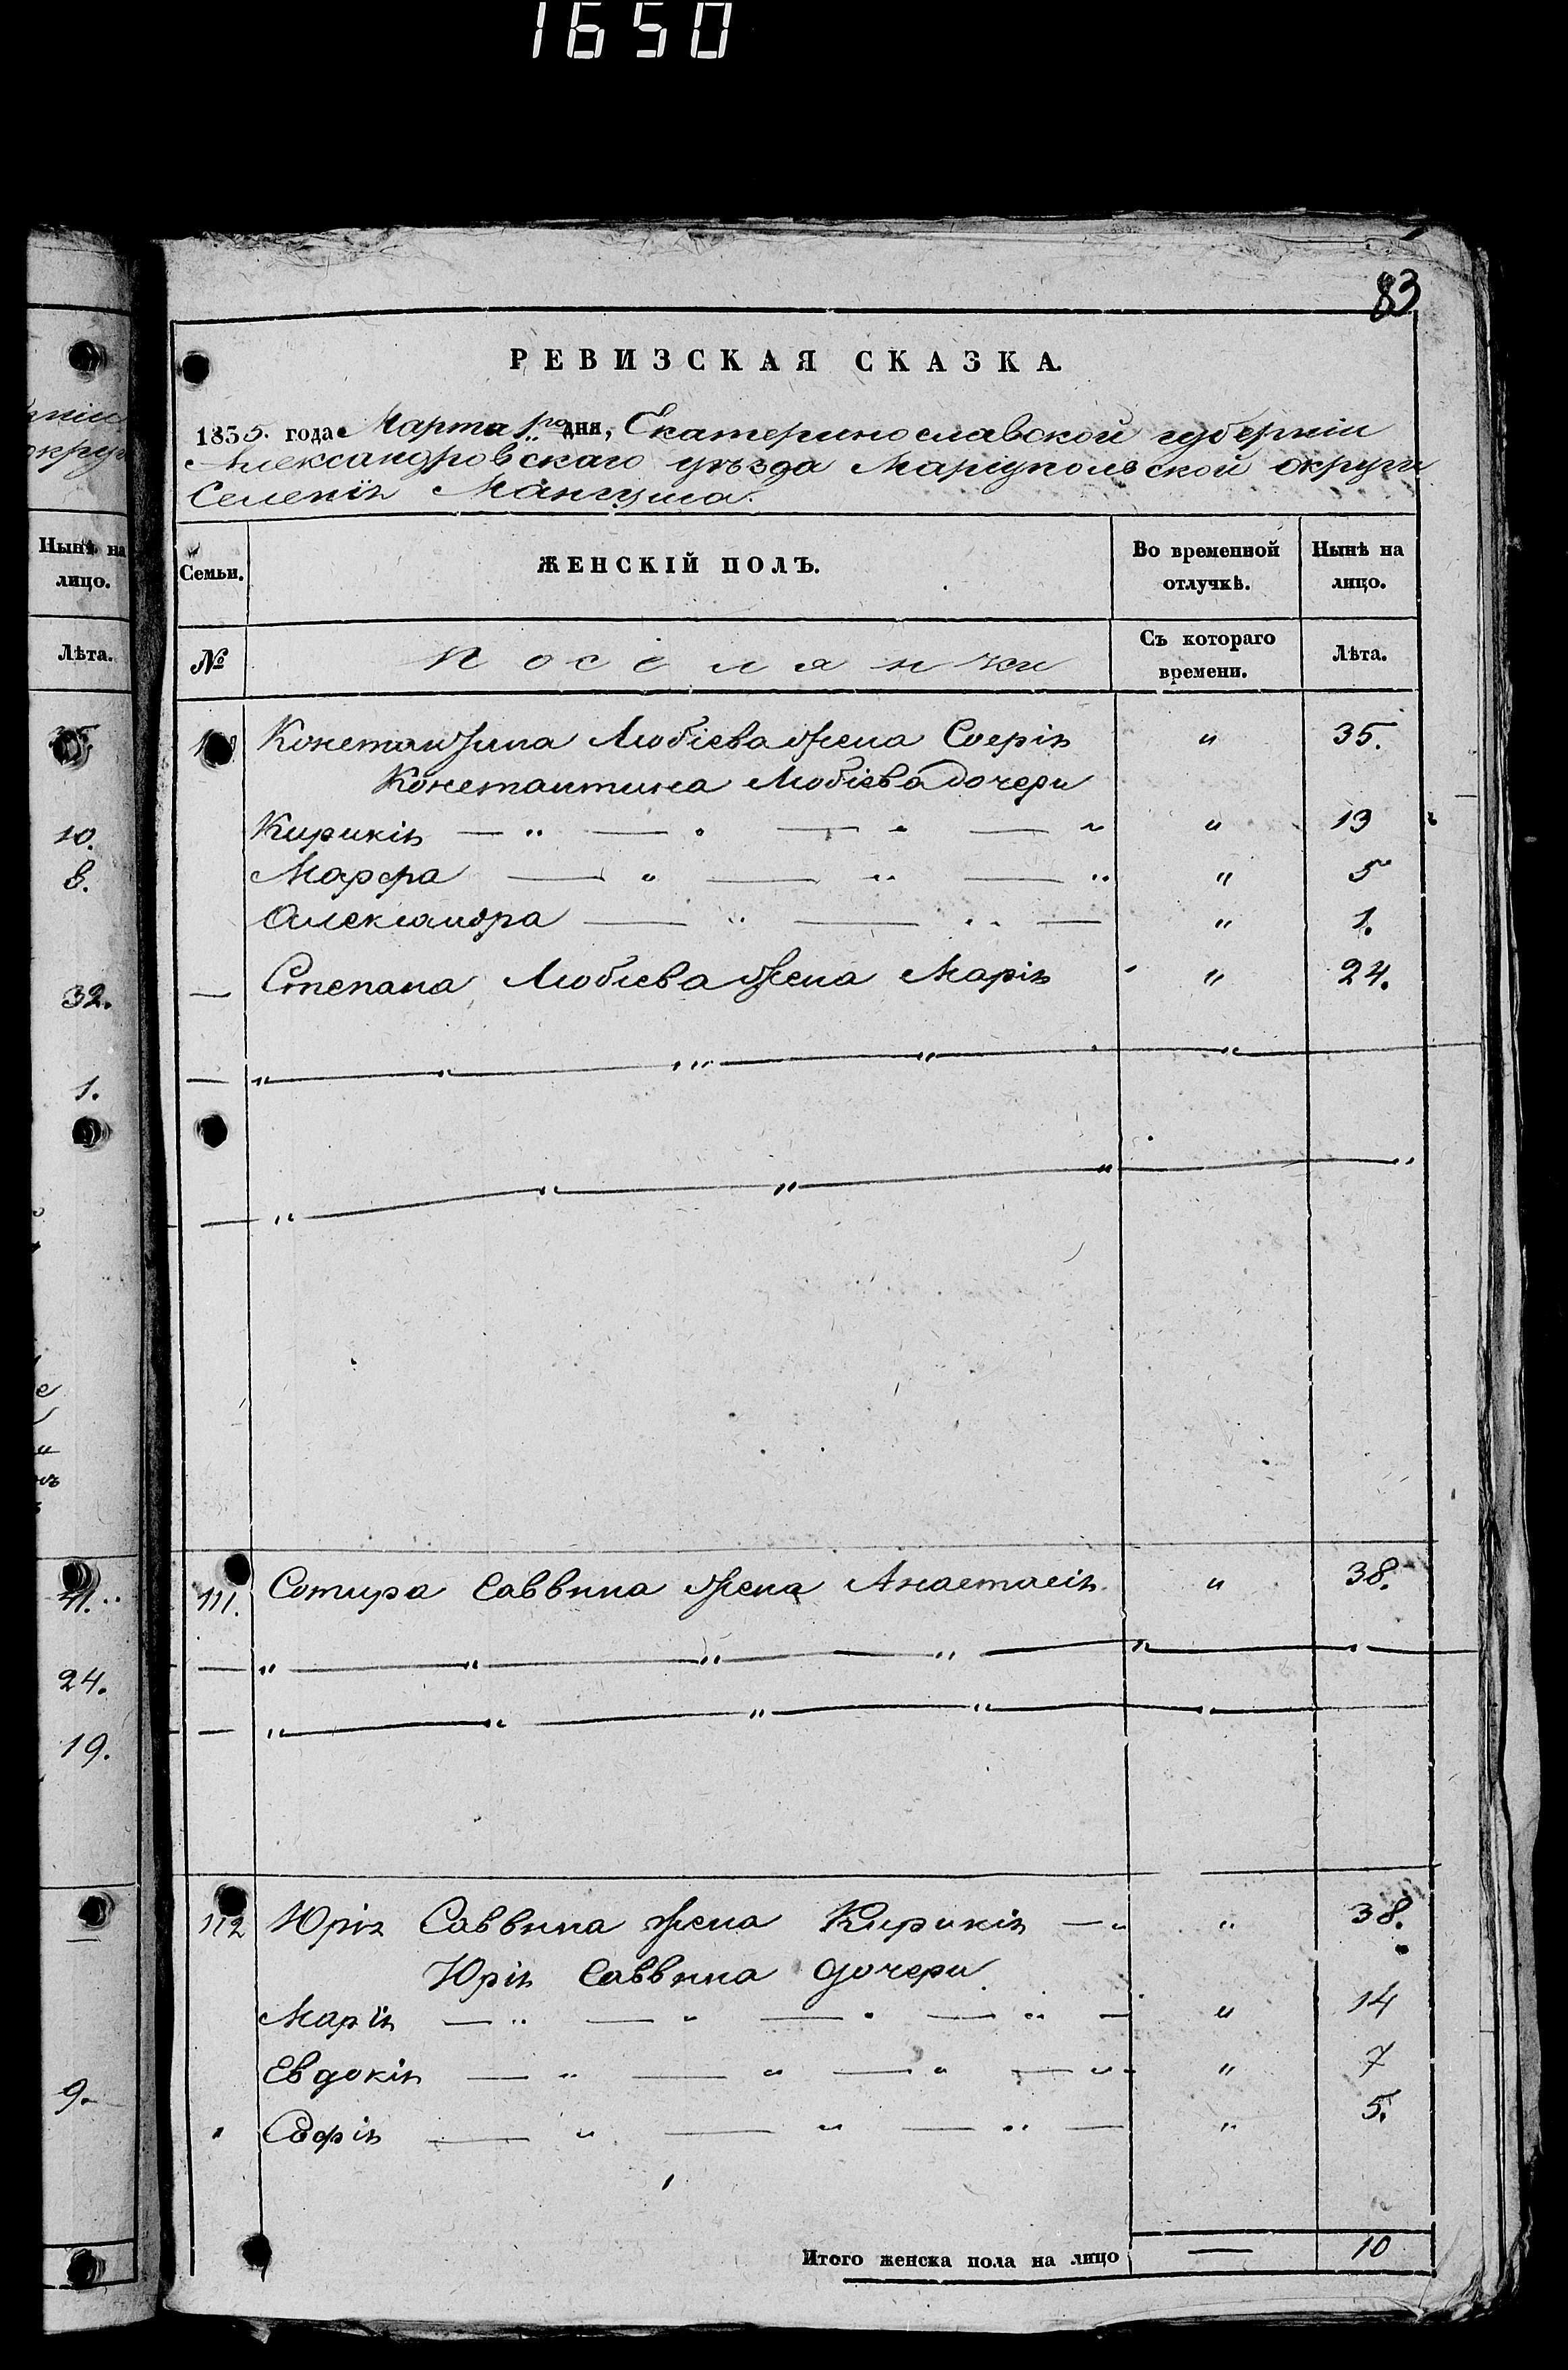 1650
83
РЕВИЗСКАЯ СКАЗКА.
1855. года Марта 1го дня, Екатеринославской губерніи
Александровскаго уѣзда Маріупольской округи
Селенія Мангуша.
Семьи.
ЖЕНСКІЙ ПОЛЪ.
Во временной отлучкѣ.
Нынѣ на лицо.
№
Поселянки
Съ котораго времени.
Лѣта.
Константина Любіева жена Софія " 35.
Константина Любіева дочери
Кирикія — " — " — " — " " 13
Марфа — " — " — " " 5
Александра — " — " — " 1.
— Степана Любіева жена Марія " 24.
— " " " " "
— " " " " "
111. Сотира Саввина жена Анастасія " 38.
— " " " " " "
— " " " " "
112 Юрія Саввина жена Кирикія — " " 38.
Юрія Саввина дочери
Марія — " — " — " — " — " 14
Евдокія — " — " — " — " " 7
Софія — " — " — " — " 5.
Итого женска пола на лицо — 10
Нынѣ на
лицо.
Лѣта.
10.
8.
32.
1.
24.
19.
9.